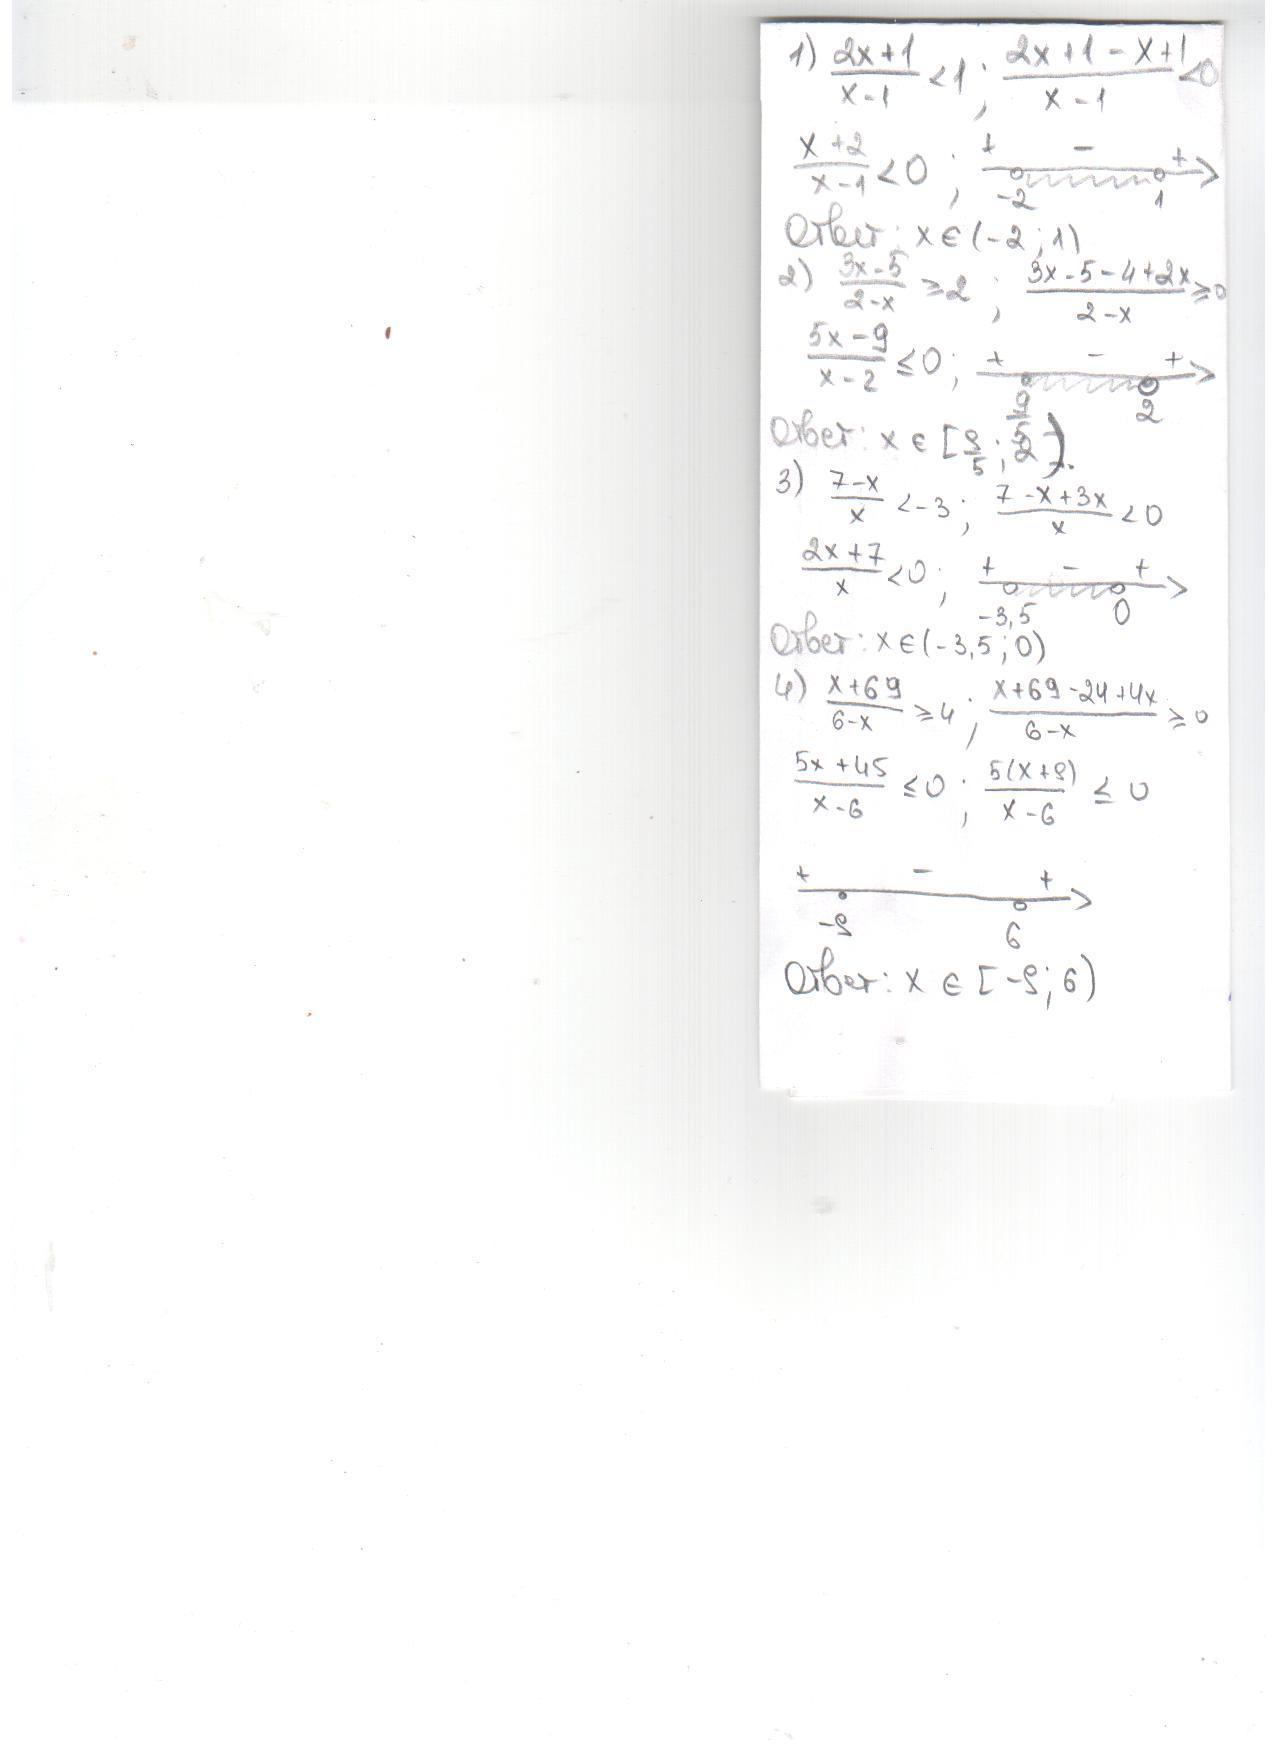 1) (2x+1)/(x-1) < 1 ; (2x+1-x+1)/(x-1) < 0
(x+2)/(x-1) < 0 ; + - +
-2 1
Ответ: x ∈ (-2 ; 1)
2) (3x-5)/(2-x) ≥ 2 ; (3x-5-4+2x)/(2-x) ≥ 0
(5x-9)/(x-2) ≤ 0 ; + - +
9/5 2
Ответ: x ∈ [9/5 ; 2).
3) (7-x)/x < -3 ; (7-x+3x)/x < 0
(2x+7)/x < 0 ; + - +
-3,5 0
Ответ: x ∈ (-3,5 ; 0)
4) (x+69)/(6-x) ≥ 4 ; (x+69-24+4x)/(6-x) ≥ 0
(5x+45)/(x-6) ≤ 0 ; 5(x+9)/(x-6) ≤ 0
+ - +
-9 6
Ответ: x ∈ [-9 ; 6)